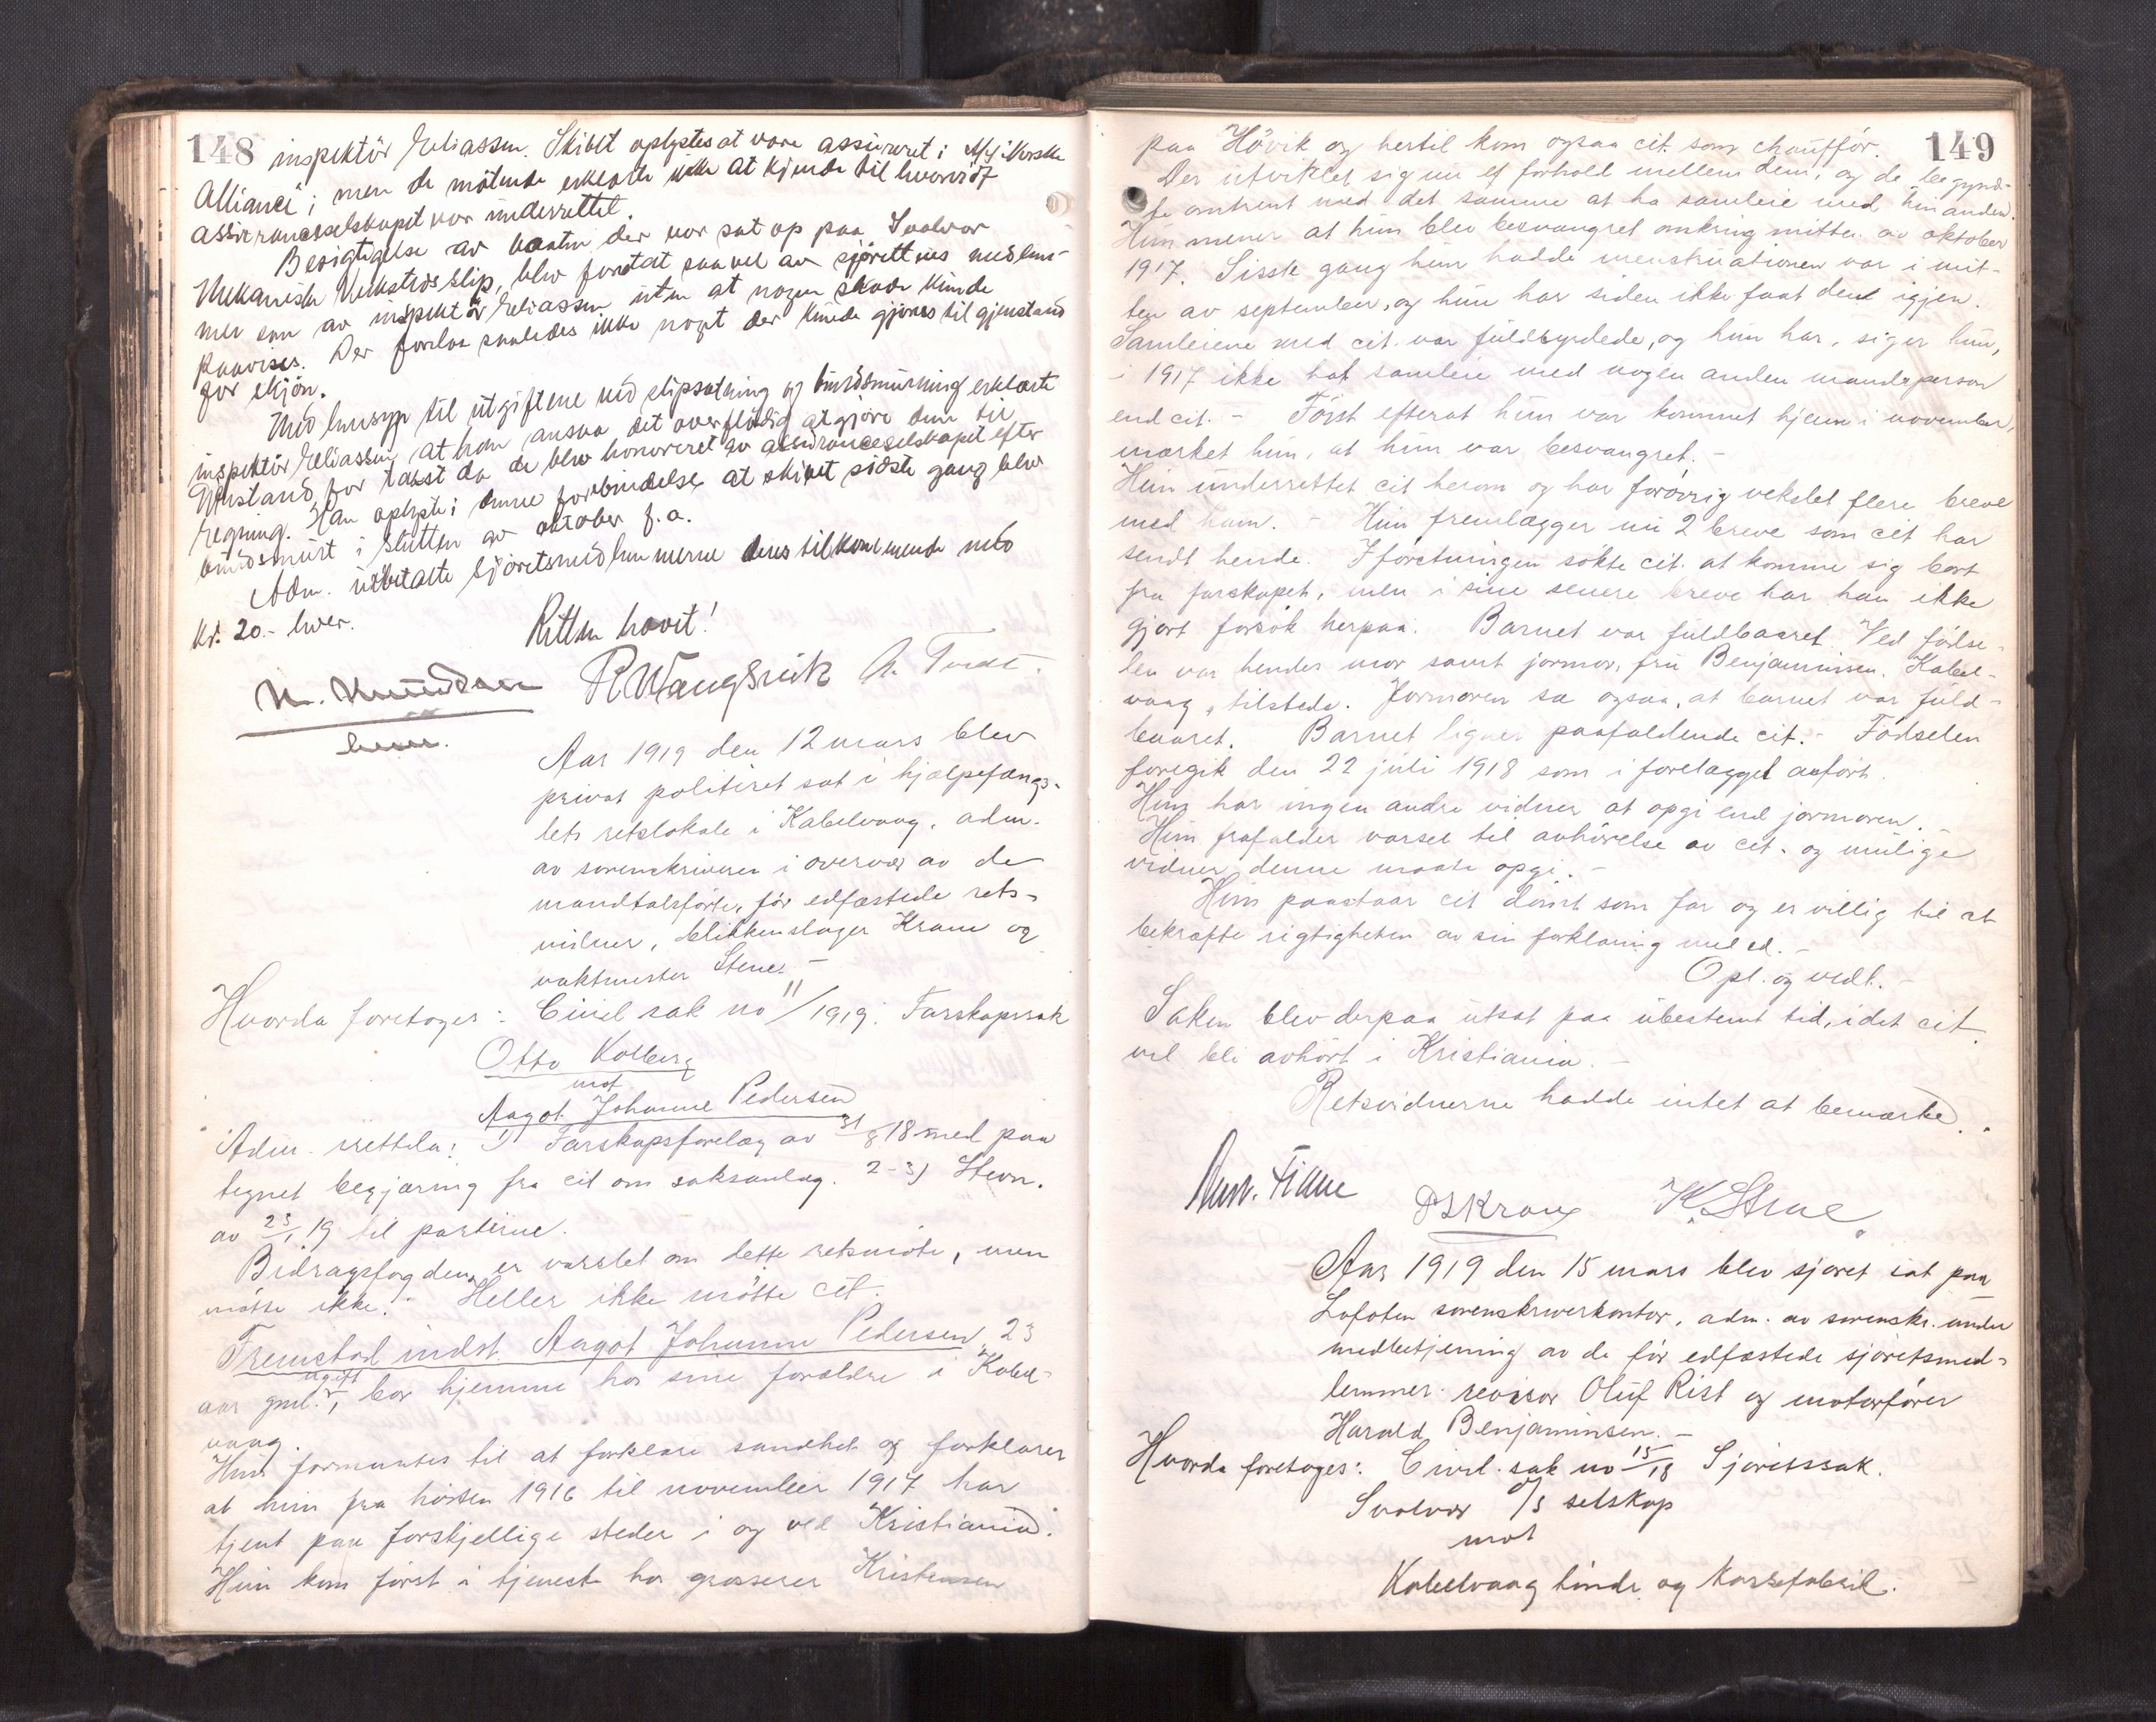 148
inspektör Eliassen. Skibet oplystes at være assureret i A/S "Norske
Alliance"; men de mötende erklærte ikke at kjende til hvorvidt
assuranceselskapet var underrettet.
Besigtigelse av baaten der var sat op paa Svolvær
Mekaniske Verksteds slip, blev foretat saavel av sjörettens medlem-
mer som av inspektör Eliassen uten at nogen skade kunde
paavises. Der forelaa saaledes ikke noget der kunde gjöres til gjenstand
for skjön.
Med hensyn til utgiftene ved slipsætning og bundsmurning erklærte
inspektör Eliassen at han ansaa det overflödig at gjöre dem til
gjenstand for takst da de blev honoreret av assuranceselskapet efter
regning. Han oplyste i denne forbindelse at skibet sidste gang blev
bundsmurt i slutten av oktober f.a.
Adm. utbetalte sjöretsmedlemmerne deres tilkommende med
kr. 20.- hver.
Retten hævet!
N. Knudsen R Wangsvik A. Tvedt.
Aar 1919 den 12 mars blev
privat politiret sat i hjælpefængs-
lets retslokale i Kabelvaag, adm.
av sorenskriveren i overvær av de
mandtalsförte, för edfæstede rets-
vidner, blikkenslager Krane og
vaktmester Stene. -
Hvorda foretoges: Civil sak no 11/1919: Farskapssak
Otto Kolberg
mot
Aagot Johanne Pedersen
Adm. rettela: 1) Farskapsforelæg av 31/8 18 med paa
tegnet begjæring fra cit om saksanlæg. 2-3) Stevn.
av 23/1 19 til parterne.
Bidragsfogden er varslet om dette retsmöte, men
mötte ikke. Heller ikke mötte cit.
Fremstod indst. Aagot Johanne Pedersen, 23
aar gml., ugift, bor hjemme hos sine forældre i Kabel-
vaag.
Hun formantes til at forklare sandhet og forklarer
at hun fra hösten 1916 til november 1917 har
tjent paa forskjellige steder i og ved Kristiania.
Hun kom först i tjeneste hos grosserer Kristensen
149
paa Hövik og hertil kom ogsaa cit. som chaufför.
Der utviklet sig nu et forhold mellem dem, og de begynd-
te omtrent med det samme at ha samleie med hinanden.
Hun mener at hun blev besvangret omkring mitten av oktober
1917. Sisste gang hun hadde menstruationen var i mit-
ten av september, og hun har siden ikke faat den igjen.
Samleiene med cit. var fuldbyrdede, og hun har, siger hun,
i 1917 ikke hat samleie med nogen anden mandsperson
end cit. - Först efterat hun var kommet hjem i november,
mærket hun, at hun var besvangret. -
Hun underrettet cit herom og har forövrig vekslet flere breve
med ham. - Hun fremlægger nu 2 breve som cit har
sendt hende. I förstningen sökte cit. at komme sig bort
fra farskapet, men i sine senere breve har han ikke
gjort forsök herpaa. Barnet var fuldbaaret. Ved födse-
len var hendes mor samt jormor, fru Benjaminsen, Kabel-
vaag, tilstede. Jormoren sa ogsaa, at barnet var fuld-
baaret. Barnet ligner paafaldende cit. - Födselen
foregik den 22 juli 1918 som i forelægget anfört.
Hun har ingen andre vidner at opgi end jormoren. -
Hun frafalder varsel til avhörelse av cit. og mulige
vidner denne maate opgi. -
Hun paastaar cit dömt som far og er villig til at
bekræfte rigtigheten av sin forklaring med ed. -
Opl. og vedt. -
Saken blev derpaa utsat paa ubestemt tid, idet cit.
vil bli avhört i Kristiania. -
Retsvidnerne hadde intet at bemærke.
K. Stene
Aar 1919 den 15 mars blev sjöret sat paa
Lofoten sorenskriverkontor, adm. av sorenskr. under
medbetjening av de för edfæstede sjöretsmed-
lemmer revisor Oluf Rist og motorförer
Harald Benjaminsen. -
Hvorda foretoges: Civil sak no 15/18 Sjöretssak.
Svolvær D/S selskap
mot
Kabelvaag Guano og Kassefabrik.